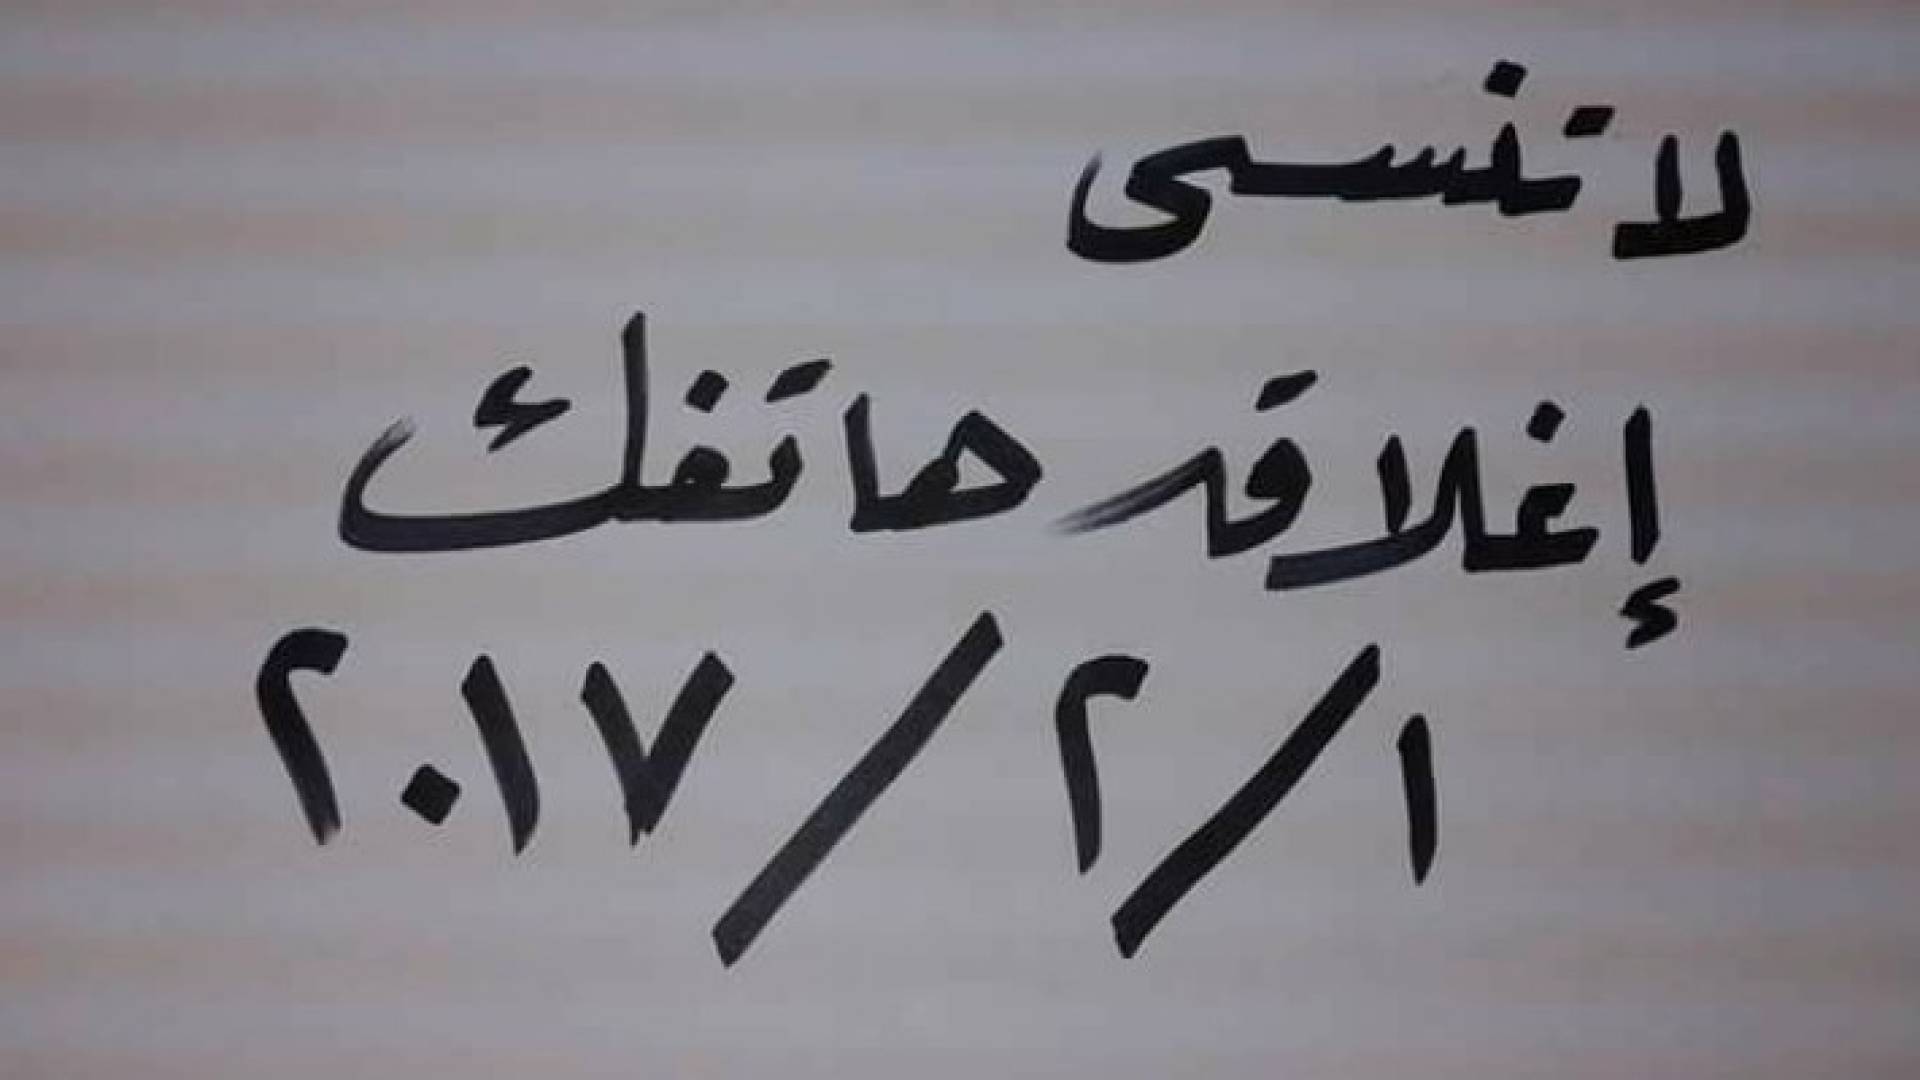 لا تنسى
إغلاق هاتفك
١/٢/٢٠١٧